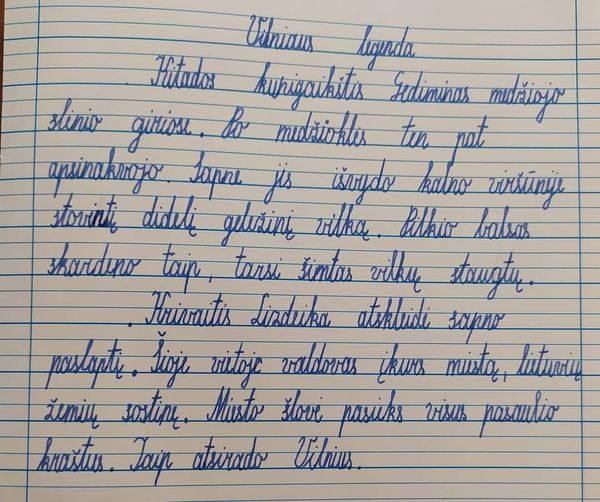 Vilniaus legenda
Kitados kunigaikštis Gediminas medžiojo
slėnio giriose. Po medžioklės ten pat
apsinakvojo. Sapne jis išvydo kalno viršūnėje
stovintį didelį geležinį vilką. Pilkio balsas
skardeno taip, tarsi šimtas vilkų staugtų.
Krivaitis Lizdeika atskleidė sapno
paslaptį. Šioje vietoje valdovas įkurs miestą, lietuvių
žemių sostinę. Miesto šlovė pasieks visus pasaulio
kraštus. Taip atsirado Vilnius.